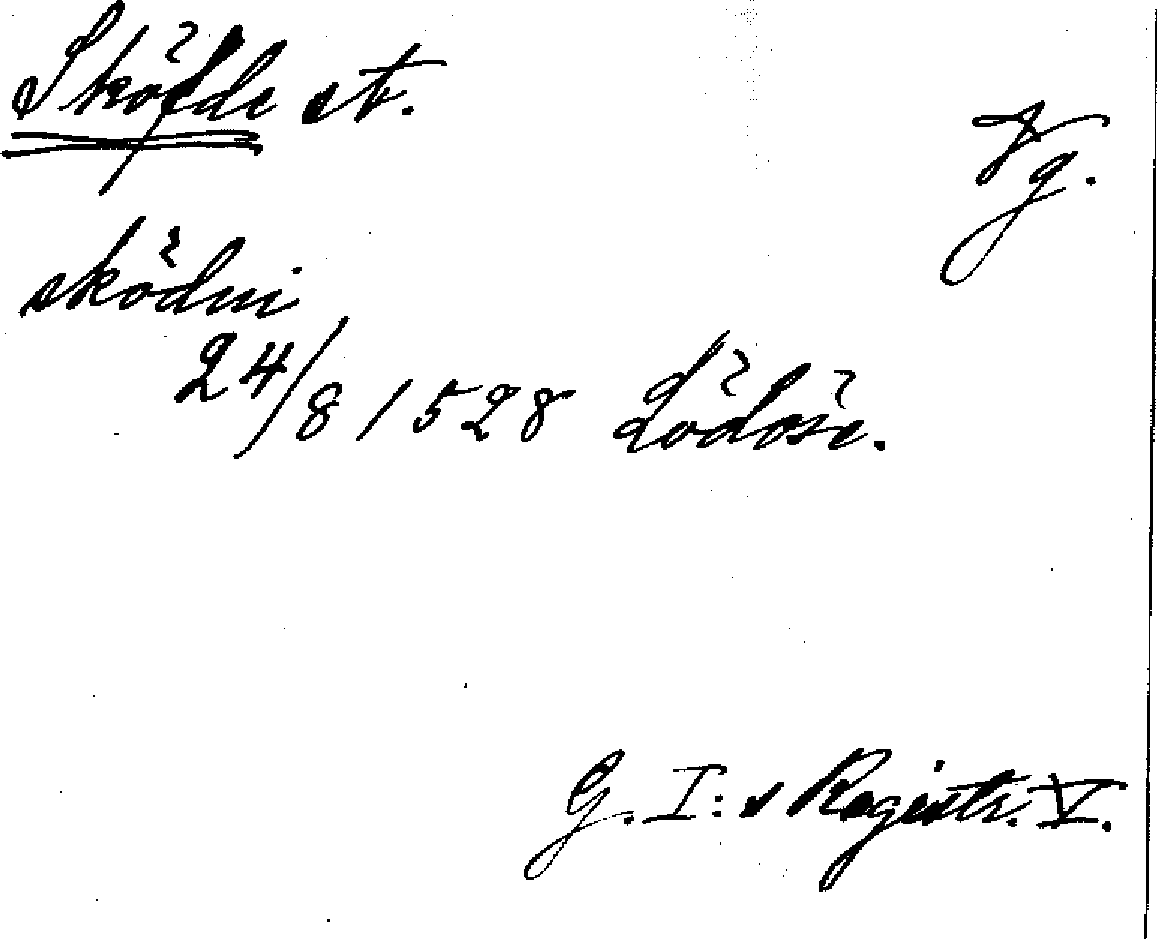 Sköfde st.
Vg.
sködui
24/8 1528 Lödöse.
G. I:s Registr. V.